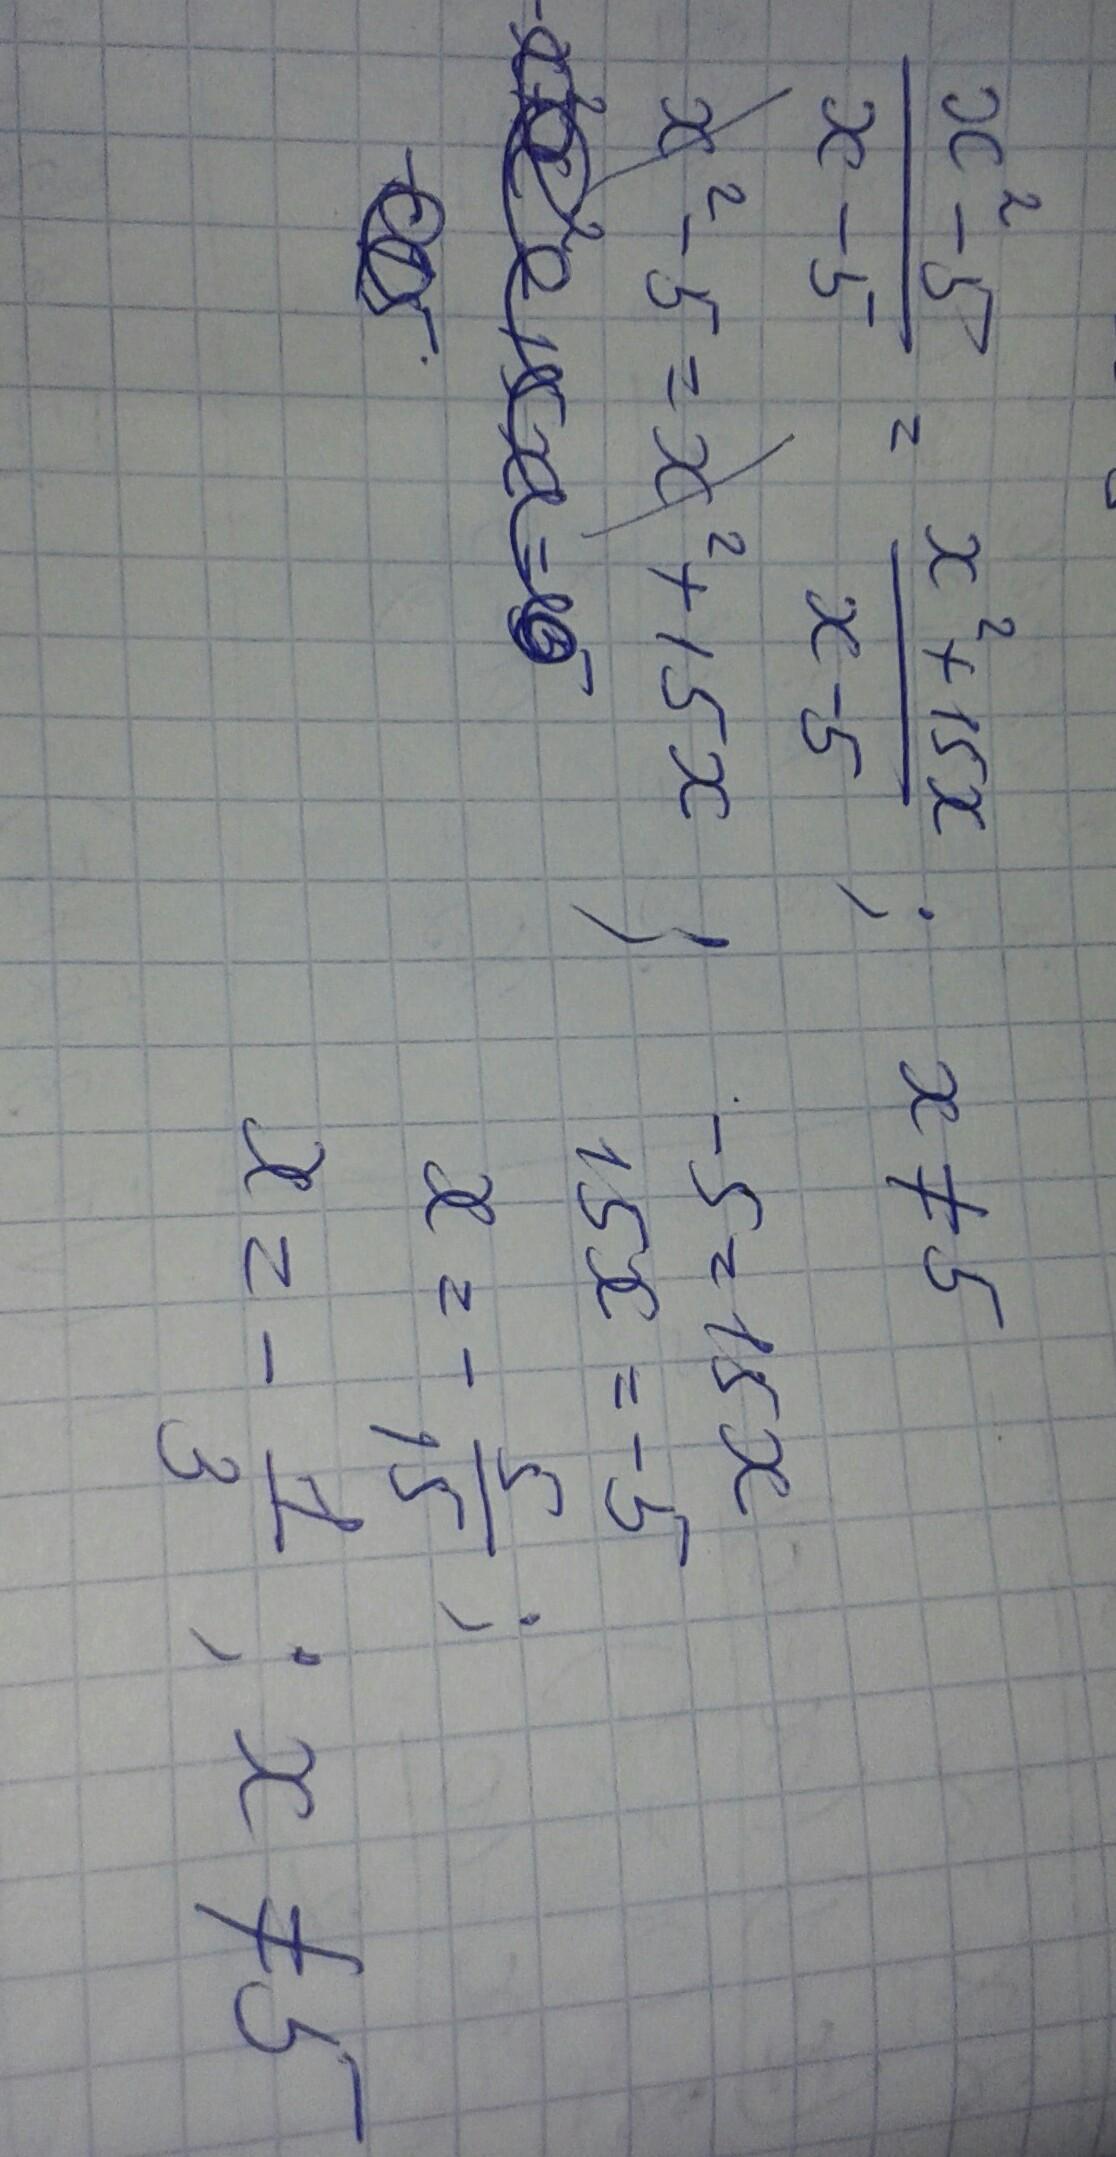 x² - 5 / x - 5 = x² + 15x / x - 5 ; x ≠ 5
x² - 5 = x² + 15x ; -5 = 15x
15x = -5
x = - 5/15 ;
x = - 1/3 ; x ≠ 5